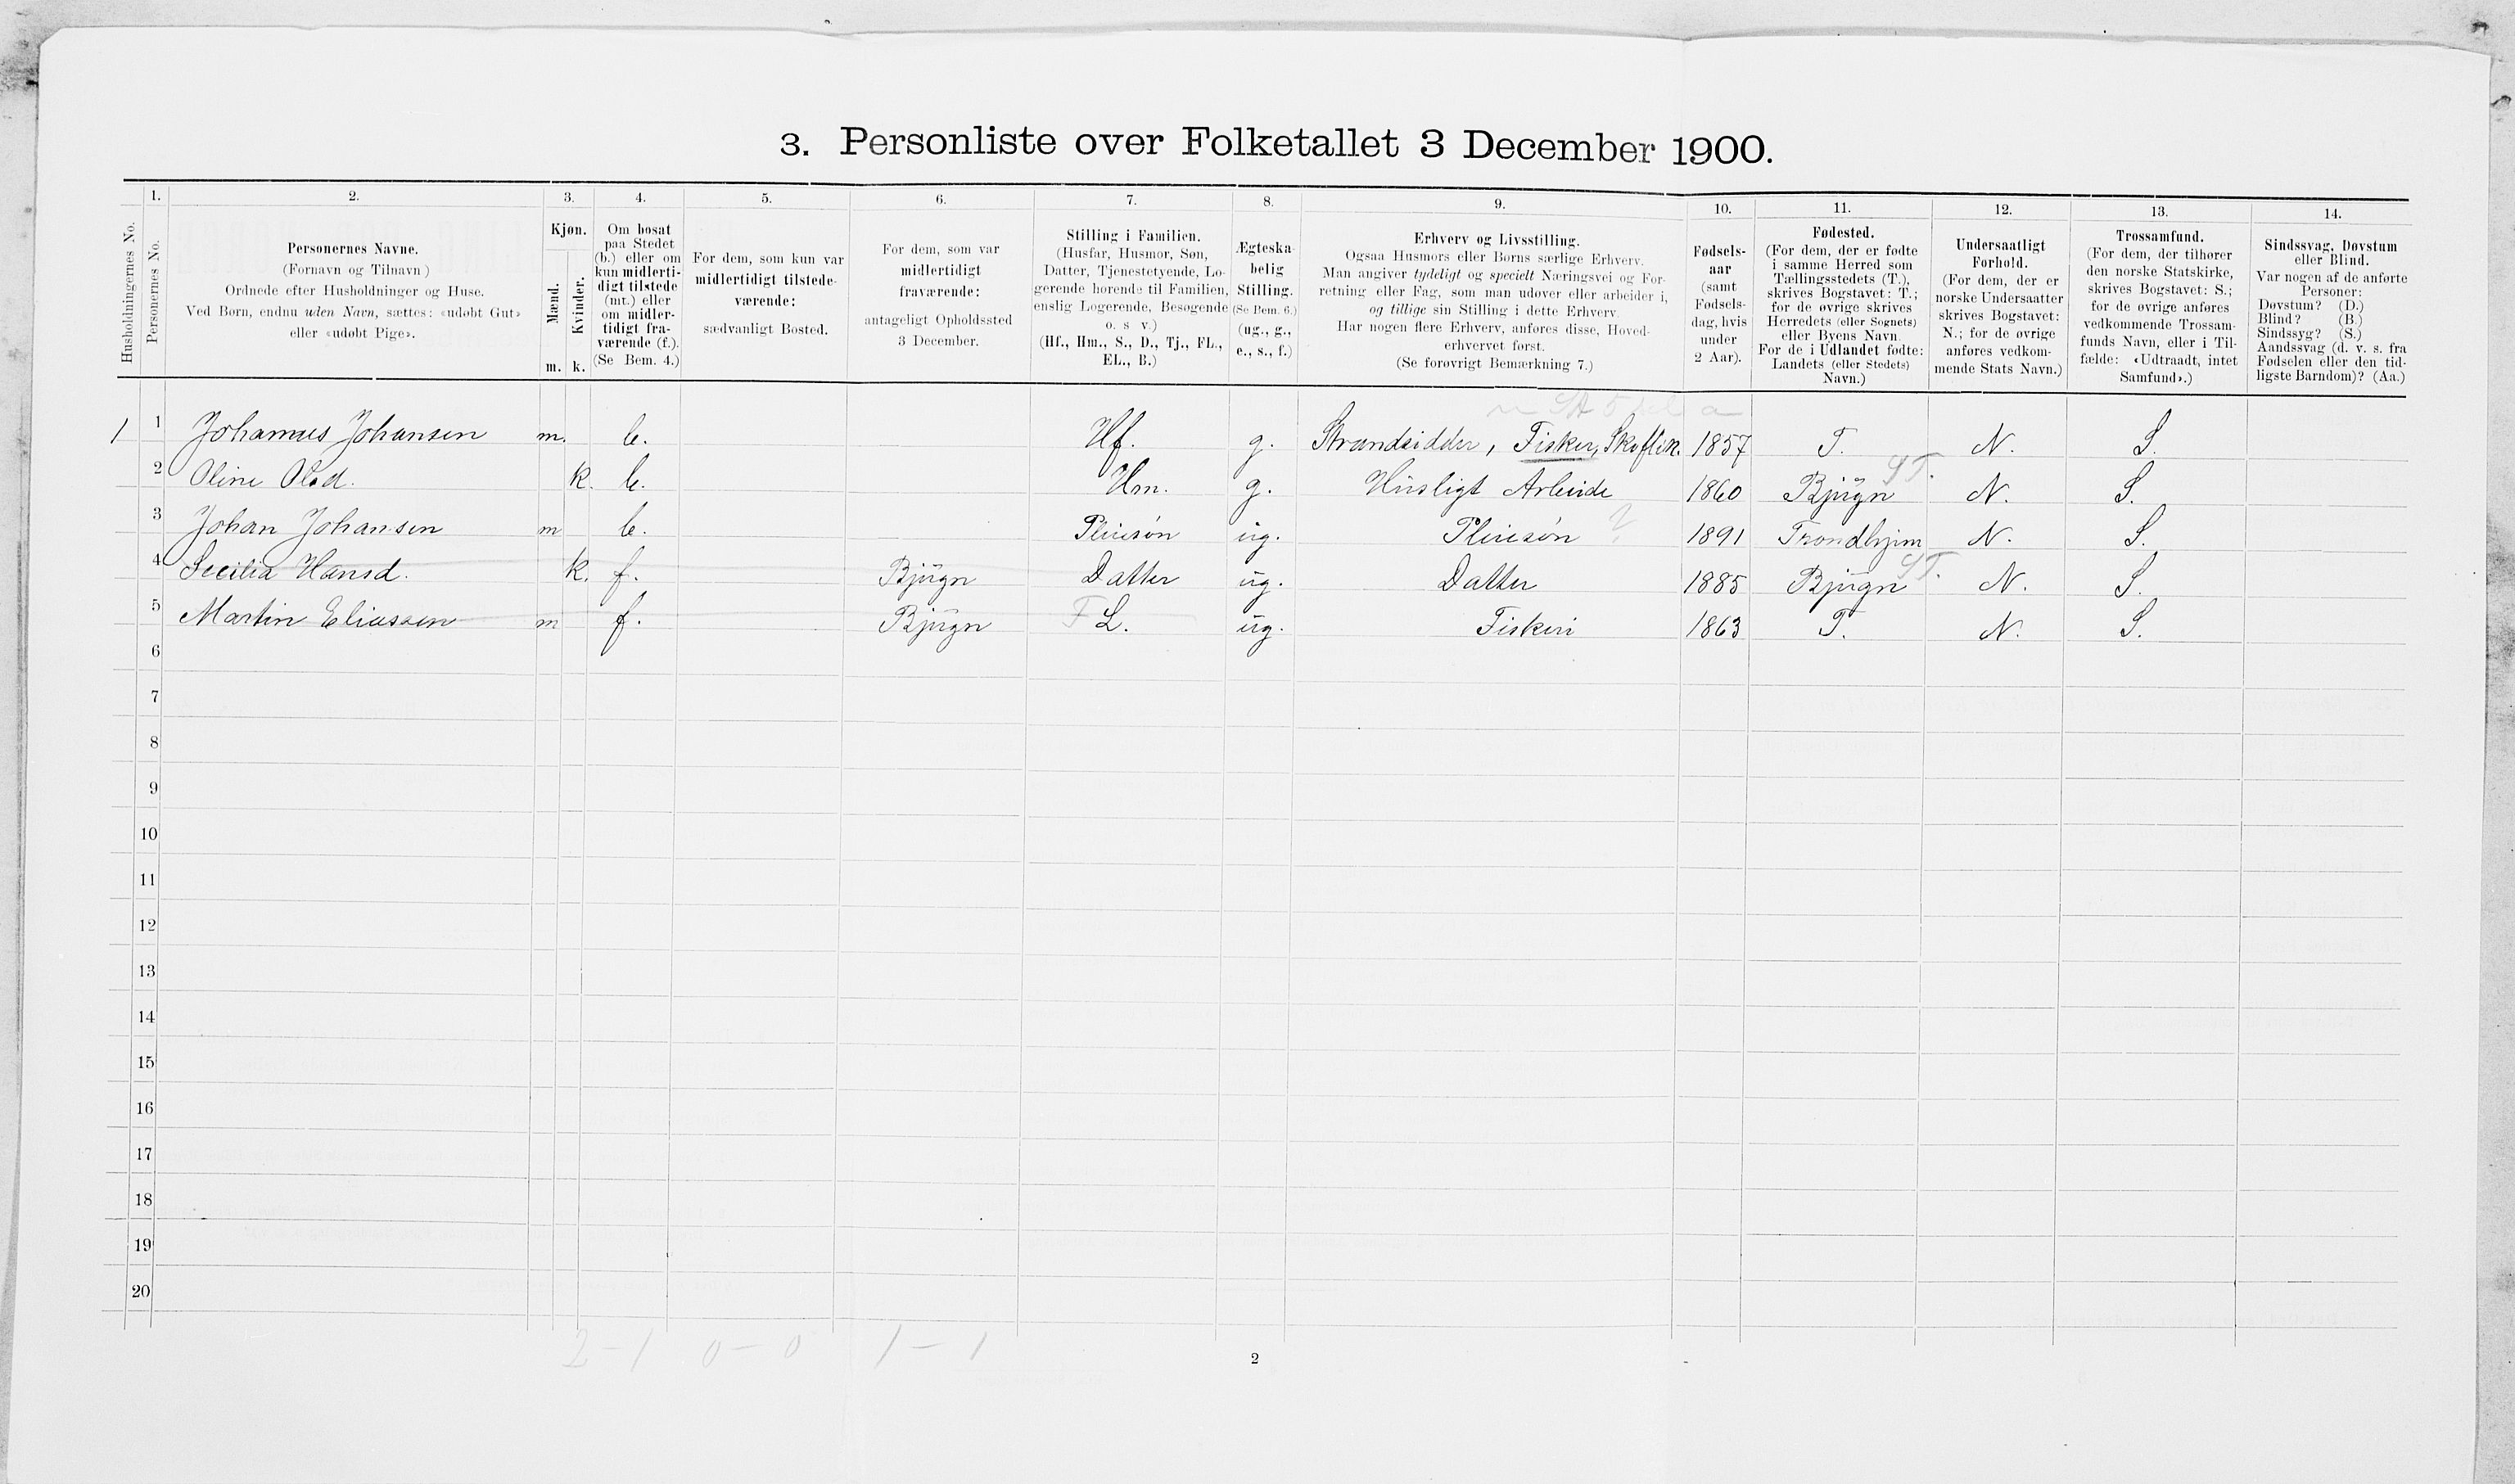 3. Personliste over Folketallet 3 December 1900.
Husholdningernes No.
1.
Personernes No.
2.
Personernes Navne.
(Fornavn og Tilnavn)
Ordnede efter Husholdninger og Huse.
Ved Børn, endnu uden Navn, sættes: «udøbt Gut»
eller «udøbt Pige».
3.
Kjøn.
Mænd.
Kvinder.
m. k.
4.
Om bosat
paa Stedet
(b.) eller om
kun midlerti-
digt tilstede
(mt.) eller
om midler-
tidigt fra-
værende (f.).
(Se Bem. 4.)
5.
For dem, som kun var
midlertidigt tilstede-
værende:
sædvanligt Bosted.
6.
For dem, som var
midlertidigt
fraværende:
antageligt Opholdssted
3 December.
7.
Stilling i Familien.
(Husfar, Husmor, Søn,
Datter, Tjenestetyende, Lo-
gerende hørende til Familien,
enslig Logerende, Besøgende
o. s v.)
(Hf., Hm., S., D., Tj., FL.,
EL., B.)
8.
Ægteska-
belig
Stilling.
(Se Bem. 6.)
(ug., g.,
e., s., f.)
9.
Erhverv og Livsstilling.
Ogsaa Husmors eller Børns særlige Erhverv.
Man angiver tydeligt og specielt Næringsvei og For-
retning eller Fag, som man udøver eller arbeider i,
og tillige sin Stilling i dette Erhverv.
Har nogen flere Erhverv, anføres disse, Hoved-
erhvervet først.
(Se forøvrigt Bemærkning 7.)
10.
Fødsels-
aar
(samt
Fødsels-
dag, hvis
under
2 Aar).
11.
Fødested.
(For dem, der er fødte
i samme Herred som
Tællingsstedets (T.),
skrives Bogstavet: T.;
for de øvrige skrives
Herredets (eller Sognets)
eller Byens Navn.
For de i Udlandet fødte:
Landets (eller Stedets)
Navn.)
12.
Undersaatligt
Forhold.
(For dem, der er
norske Undersaatter
skrives Bogstavet:
N.; for de øvrige
anføres vedkom-
mende Stats Navn.)
13.
Trossamfund.
(For dem, der tilhører
den norske Statskirke,
skrives Bogstavet: S.;
for de øvrige anføres
vedkommende Trossam-
funds Navn, eller i Til-
fælde: «Udtraadt, intet
Samfund».)
14.
Sindssvag, Døvstum
eller Blind.
Var nogen af de anførte
Personer:
Døvstum? (D.)
Blind? (B.)
Sindssyg? (S.)
Aandssvag (d. v. s. fra
Fødselen eller den tid-
ligste Barndom)? (Aa.)
1 1 Johannes Johansen m. b. Hf. g. Strandsidder, Fisker, 1857 T. N. S.
2 Oline Olsd. k. b. Hm. g. Húsligt Arbeide 1860 Bjúgn ST. N. S.
3 Johan Johansen m b. Pleiesøn úg. Pleiesøn ? 1891 Trondhjem N. S.
4 Secilia Hansd. k. f. Bjúgn Datter úg. Datter 1885 Bjúgn ST. N. S.
5 Martin Eliassen m f. Bjúgn F L. úg. Fiskeri 1863 T. N. S.
6
7
8
9
10
11
12
13
14
15
16
17
18
19
20
2-1 0-0 1-1
2